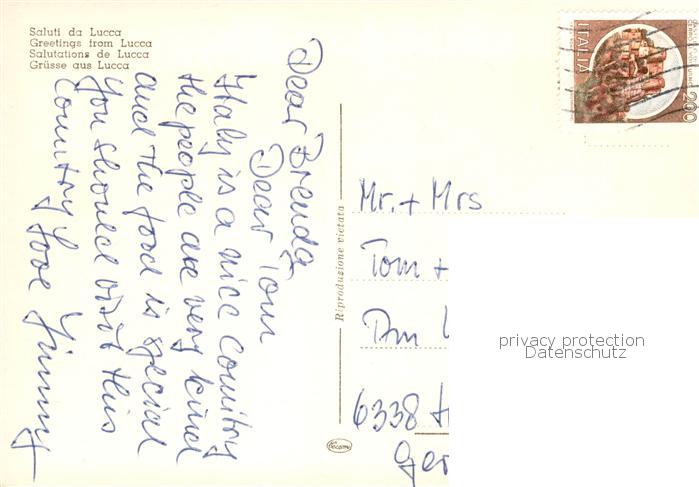 Saluti da Lucca
Greetings from Lucca
Salutations de Lucca
Grüsse aus Lucca
Dear Brenda
Dear Tom
Italy is a nice country
the people are very kind
and the food is special
You should visit this
country Love Jimmy
Riproduzione vietata
ITALIA
200
Mr. + Mrs
Tom +
Am
6338
Ger
privacy protection
Datenschutz